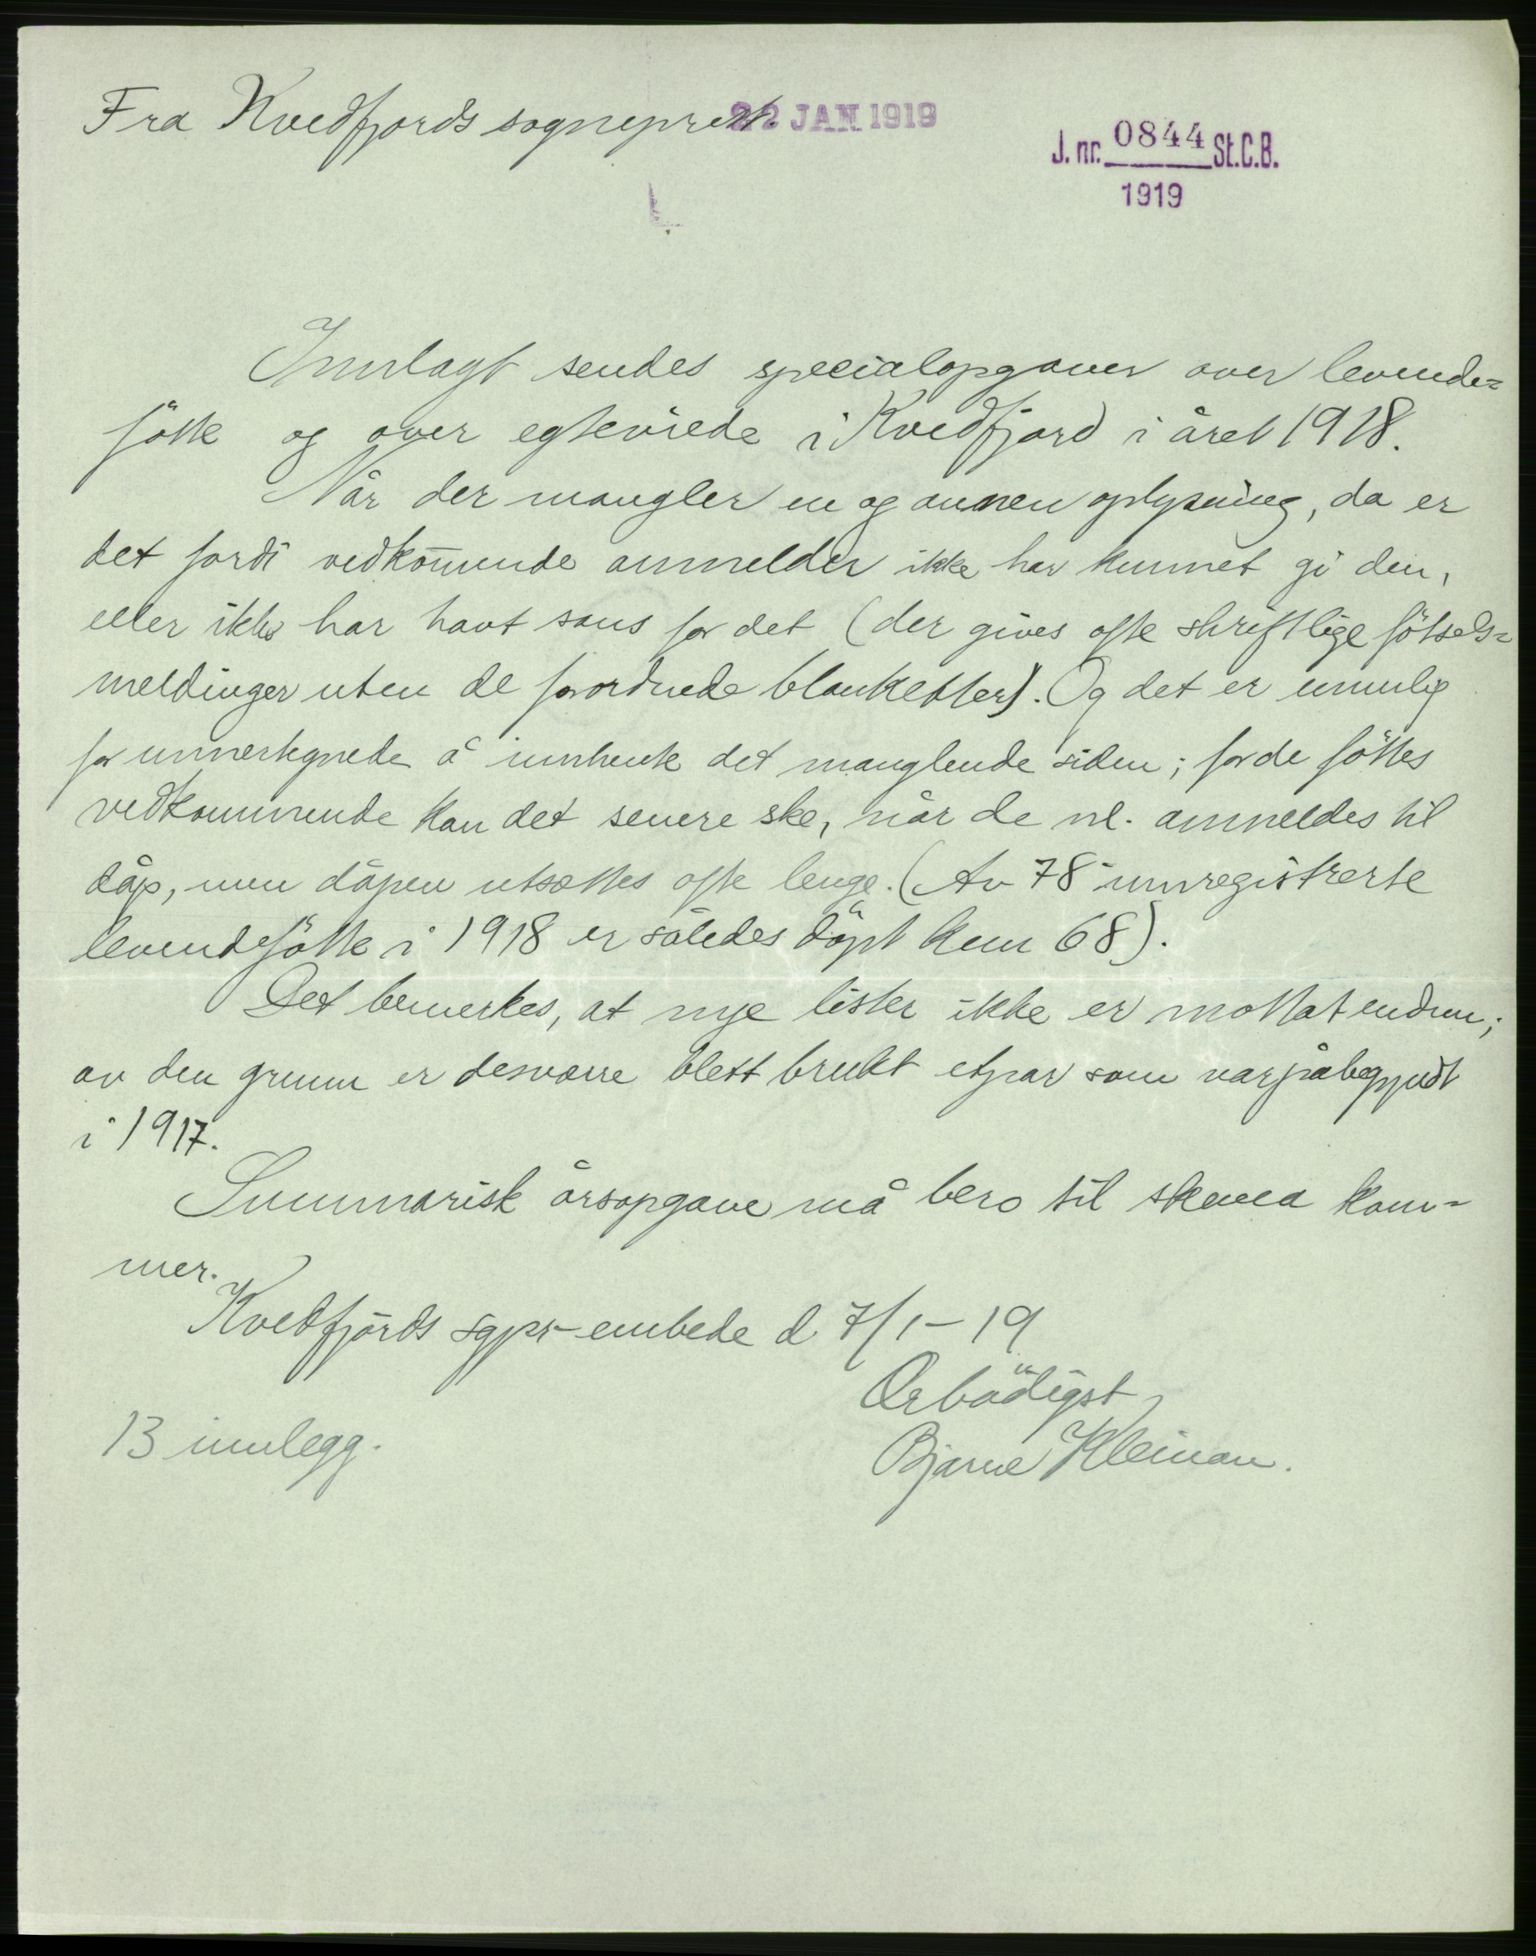 Fra Kvedfjords sogneprest.
22 JAN 1919
J. nr. 0844 St.C.B.
1919
Innlagt sendes specialopgaver over levende=
fötte og over egteviede i Kvedfjord i året 1918.
Når der mangler en og annen oplysning, da er
det fordi vedkom̄ende anmelder ikke har kunnet gi den,
eller ikke har havt sans for det (der gives ofte skriftlige fötsels=
meldinger uten de forordnede blanketter). Og det er umulig
for unnertegnede å innhente det manglende siden; for de föttes
vedkommende kan det senere ske, når de nl. anmeldes til
dåp, men dåpen utsættes ofte lenge. (Av 78 innregistrerte
levendefötte i 1918 er således döpt kun 68).
Det bemerkes, at nye lister ikke er mottat endnu;
av den grunn er desværre blett brukt etpar som var påbegyndt
i 1917.
Summarisk årsopgave må bero til skema kom=
mer.
Kvedfjords sgpr-embede d 7/1-19
Ærbödigst
Bjarne Kleivan.
13 innlegg.